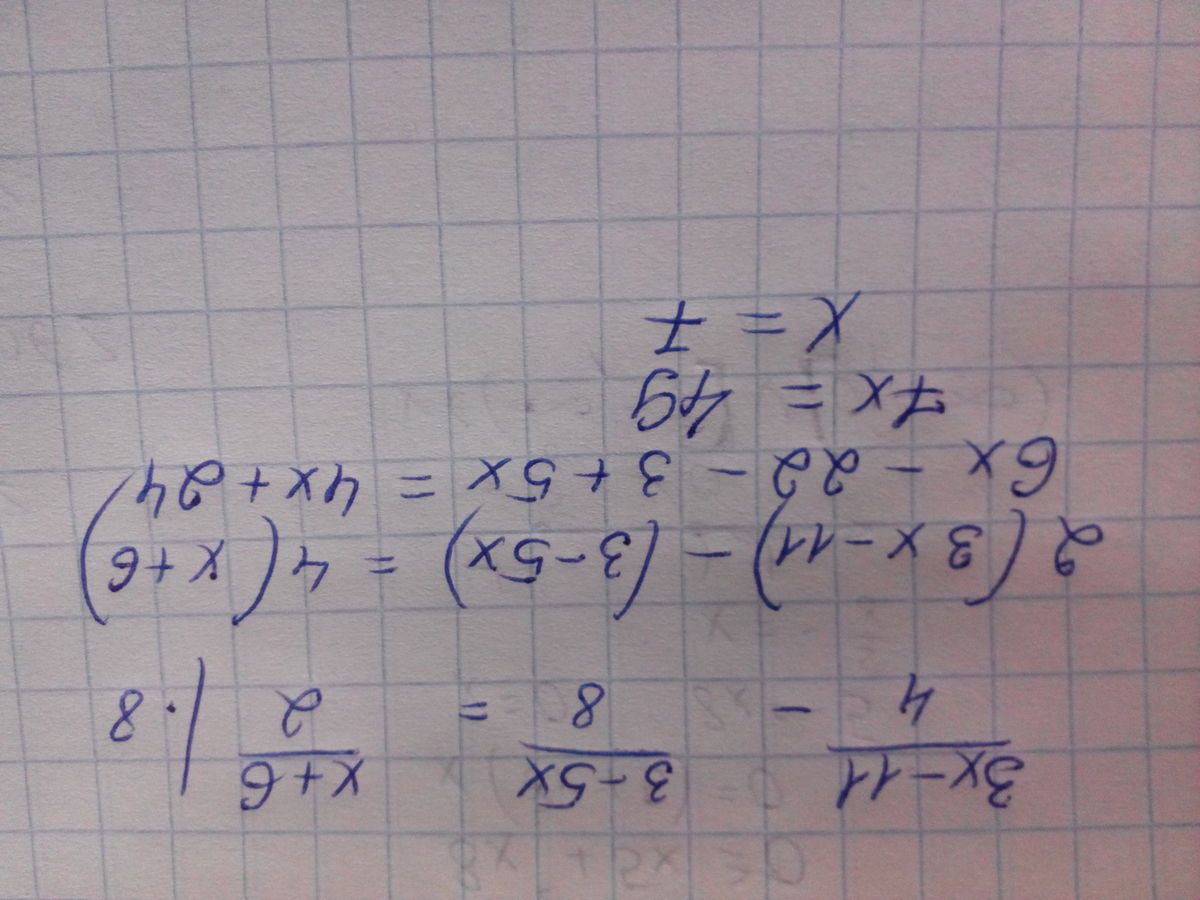 3x-11 / 4 - 3-5x / 8 = x+6 / 2 | · 8
2(3x-11) - (3-5x) = 4(x+6)
6x - 22 - 3 + 5x = 4x + 24
7x = 49
x = 7